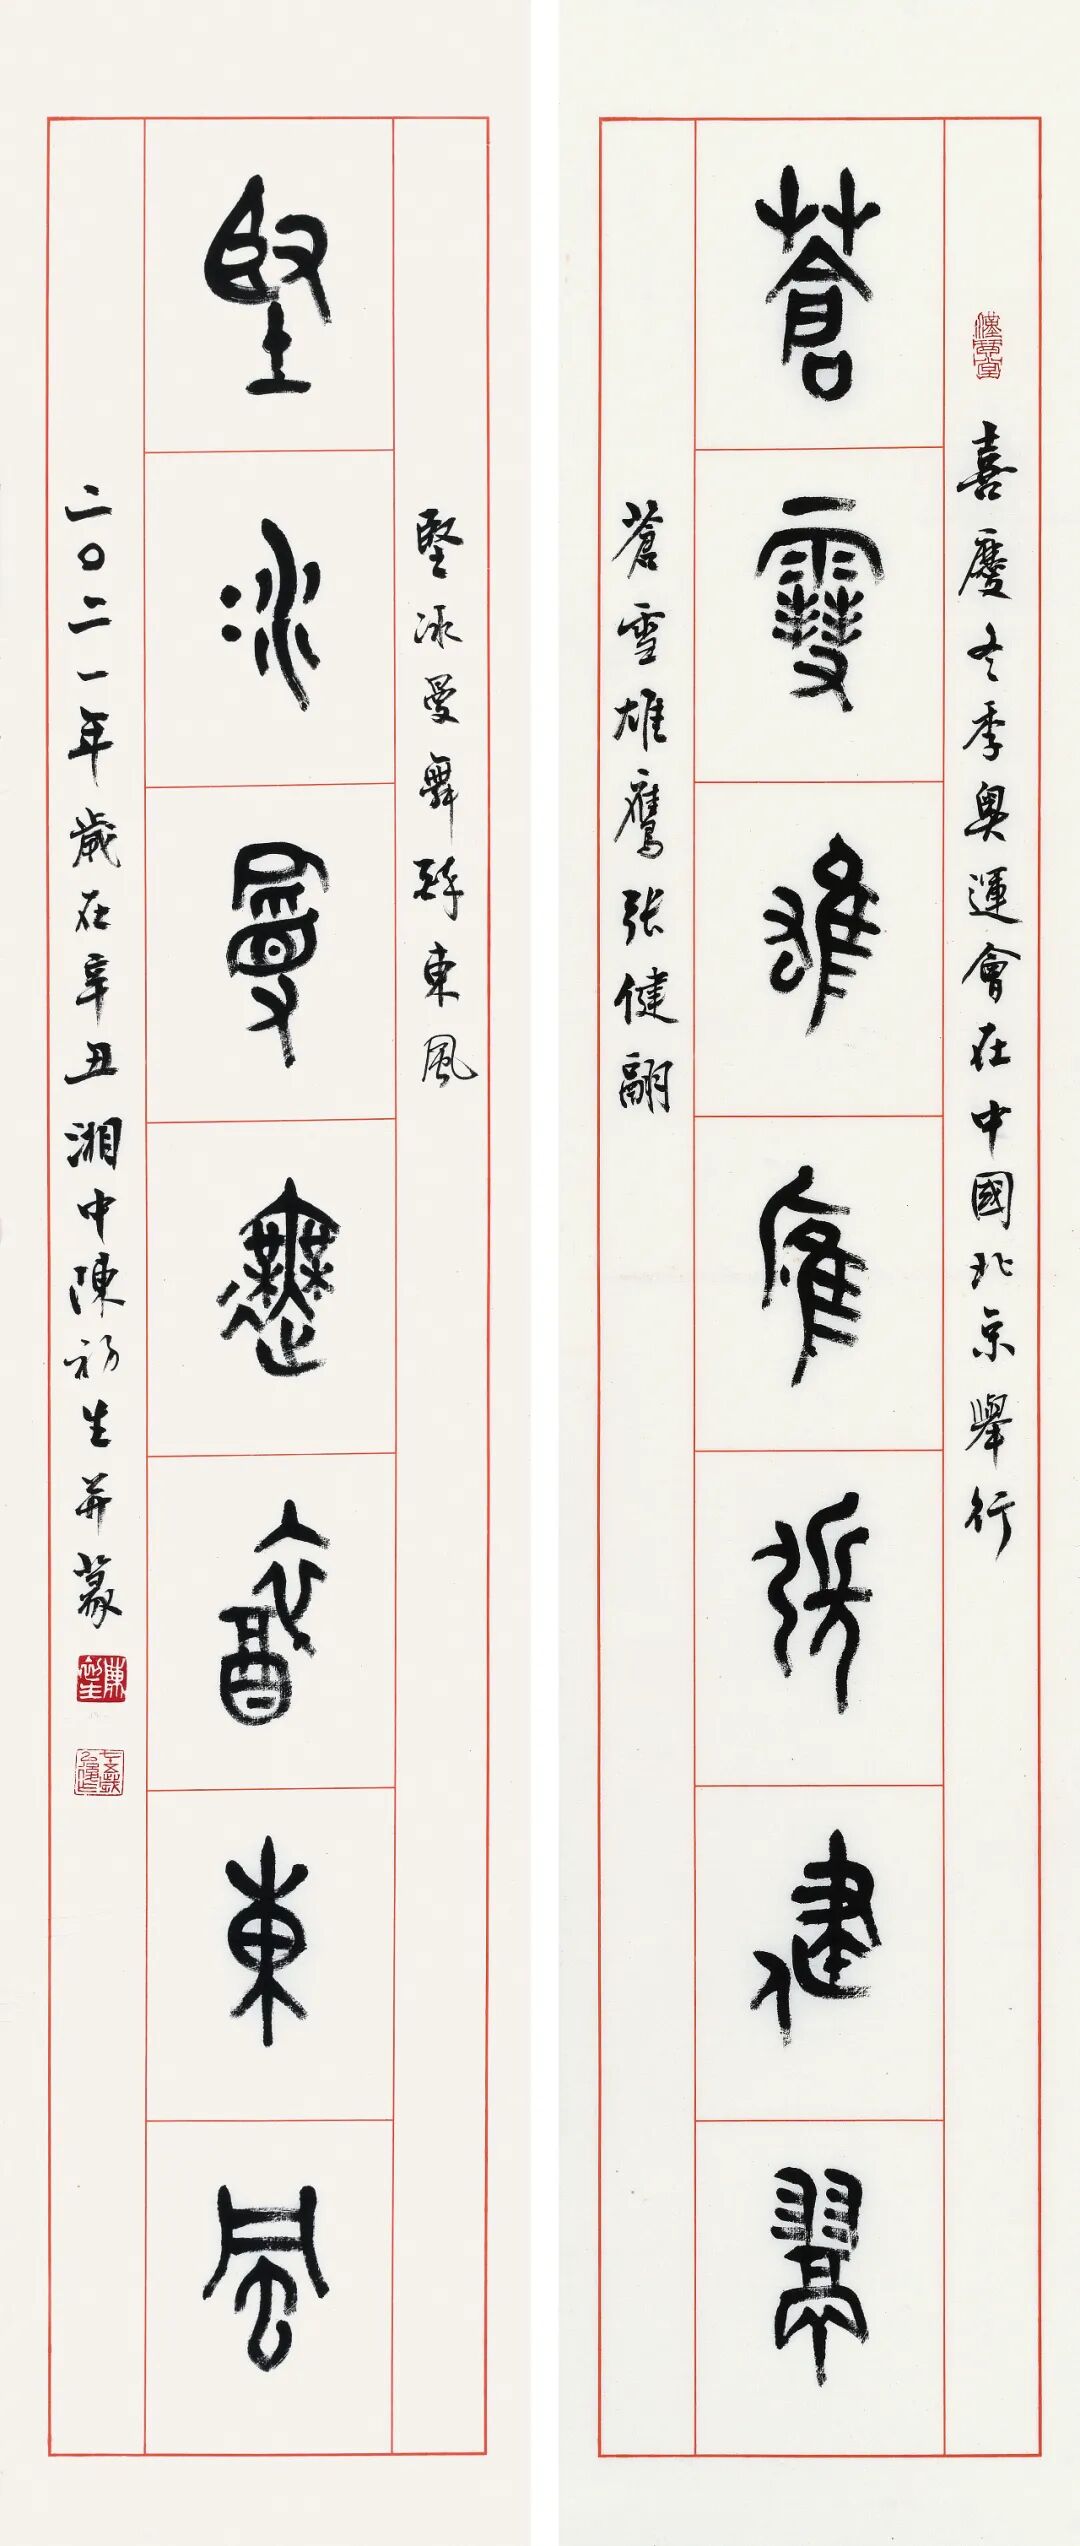 喜慶冬季奧運會在中國北京舉行
蒼雪雄鷹張健翮
蒼雪雄鷹張健翮
堅冰曼舞醉東風
堅冰曼舞醉東風
二〇二一年歲在辛丑湘中陳初生并篆
陳初生